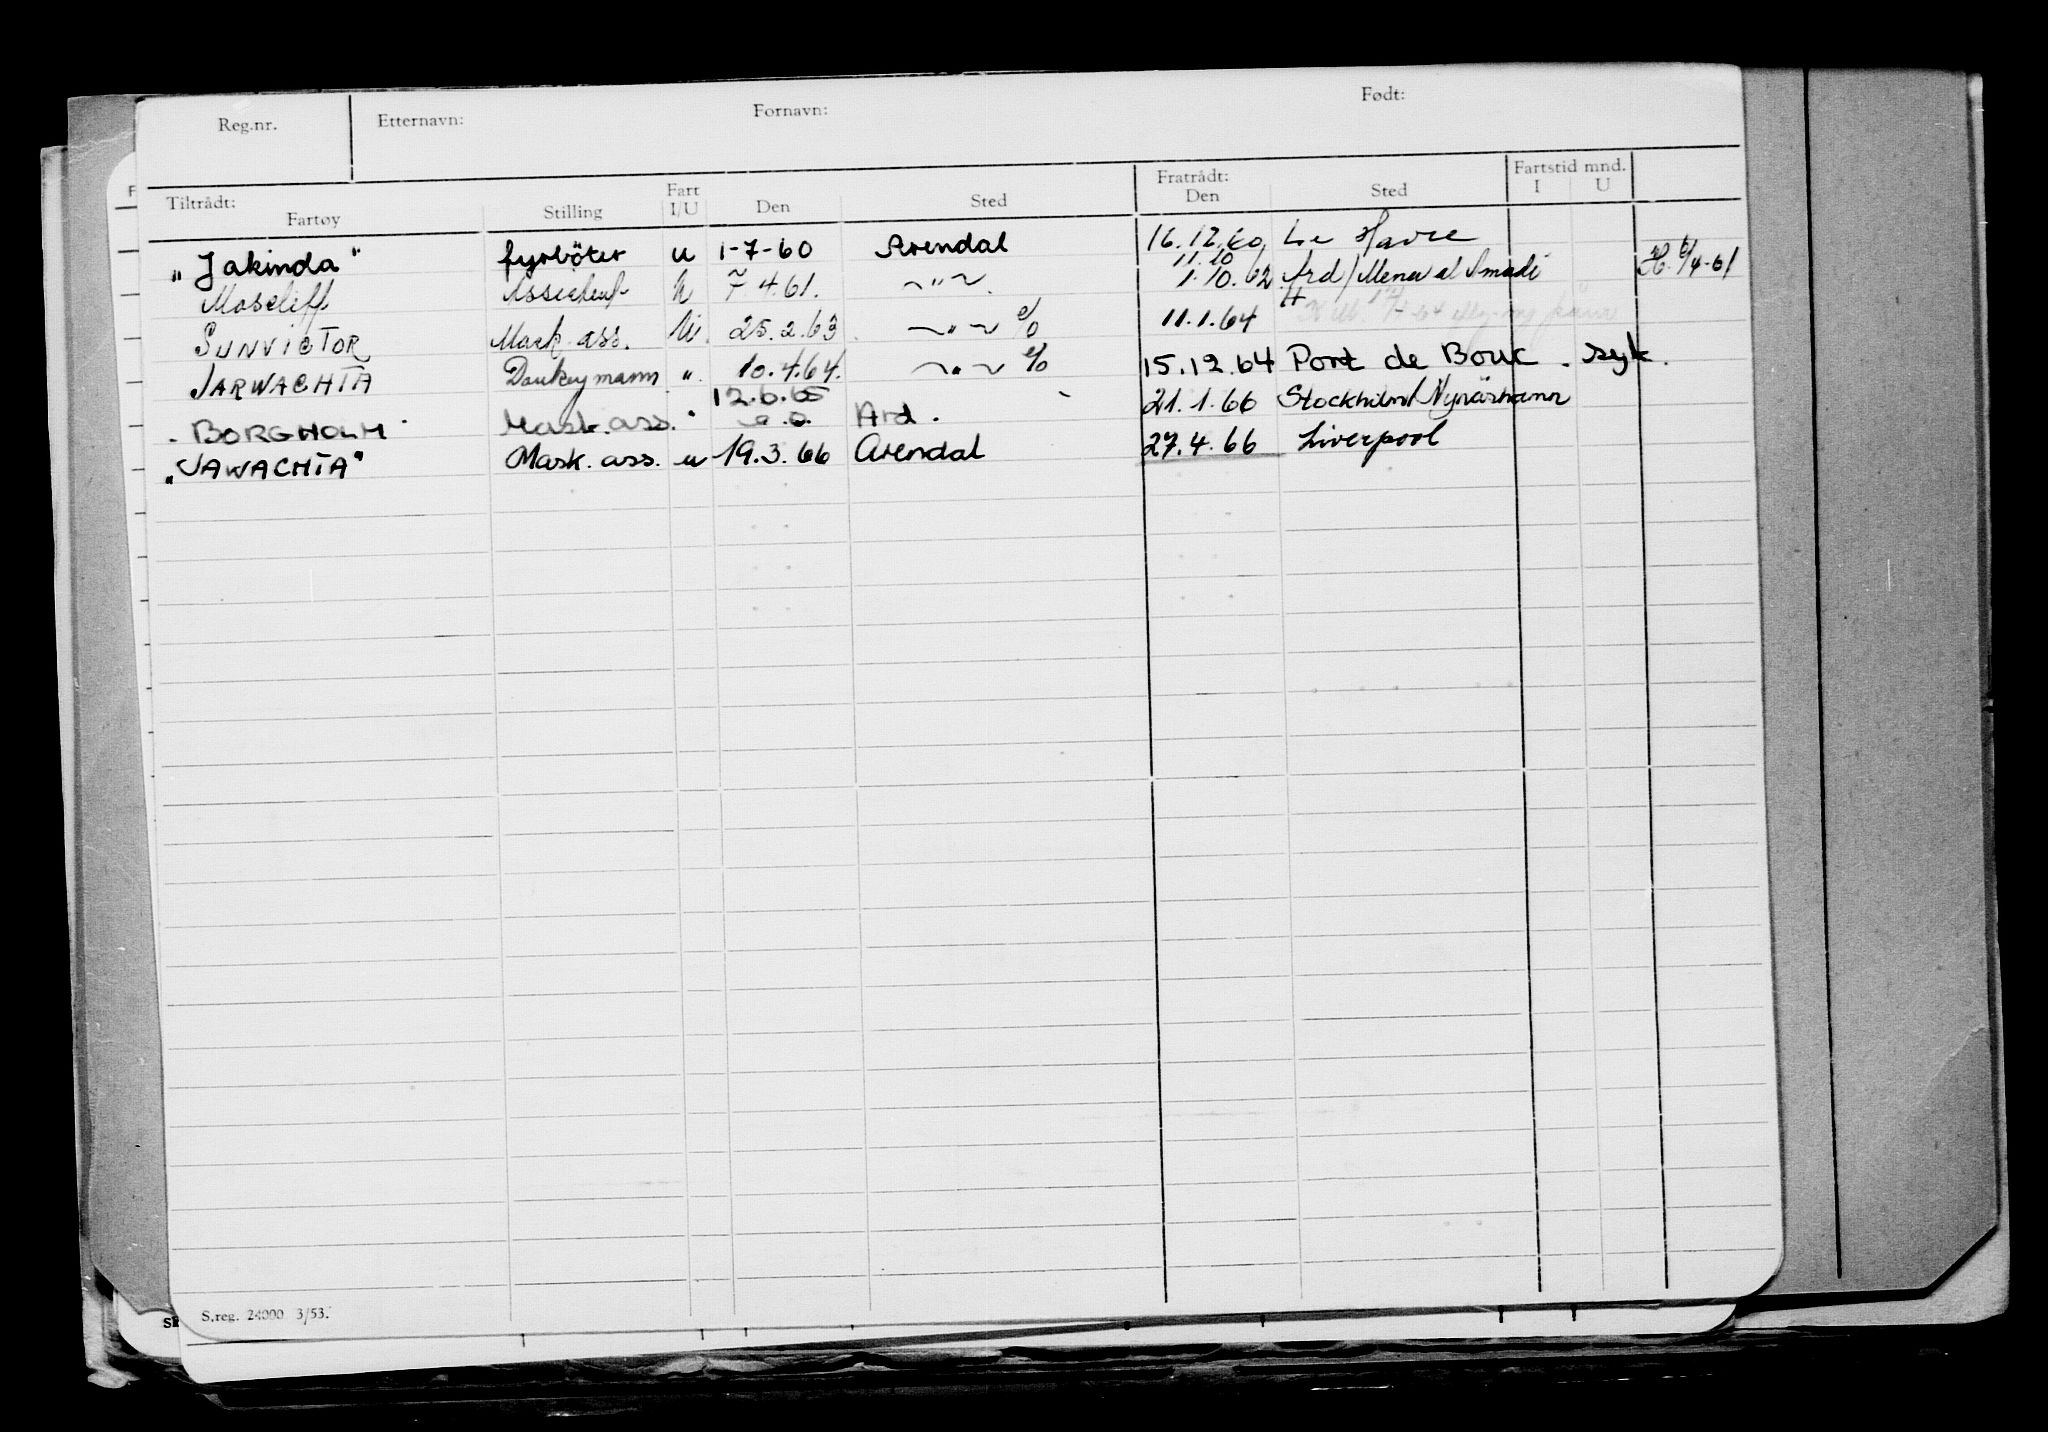 Reg.nr. Etternavn: Fornavn: Født:
Tiltrådt: Fartøy Stilling Fart I/U Den Sted Fratrådt: Den Sted Fartstid mnd. I U
"Jakinda" fyrböter u 1-7-60 Arendal 16.12.60, Le Havre
Moscliff U 7 4.61. ~ " ~ 11.10 1.10.62 Ard/Mena al H. 6/4-61
SUNVICTOR Mask. ass. U. 25.2.63 ~ " ~ % 11.1.64
JARWACHTA Donkeymann " 10.4.64. ~ " ~ % 15.12.64 Port de Bouc. syk.
"BORGHOLM" Mask. ass. " 12.6.65 Ard. 21.1.66 Stockholm/Nynäshamn
"JAWACHTA" Mask. ass. u 19.3.66 Arendal 27.4.66 Liverpool
S.reg. 24000 3/53.